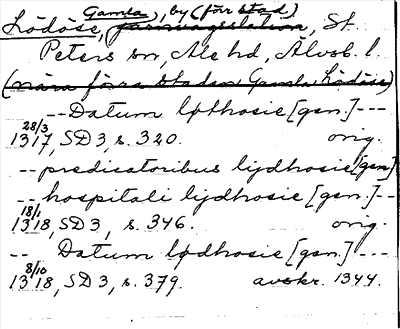 Lödöse, Gamla, by (förr stad) järnvägsstation, St.
Peters sn, Ale hd, Älvsb. l.
(nära förra staden Gamla Lödöse)
-- Datum løthosie [gen.] ---
28/3 1317, SD 3, s. 320. orig.
-- predicatoribus lijdhosie [gen.]
-- hospitali lijdhosie [gen.] --
18/1 1318, SD 3, s. 346. orig.
-- Datum lødhosie [gen.] ---
8/10 1318, SD 3, s. 379. avskr. 1344.